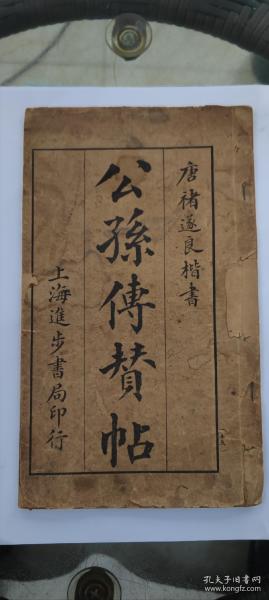 唐褚遂良楷書
公孫傳賛帖
上海進步書局印行
孔夫子旧书网
www.kongfz.com